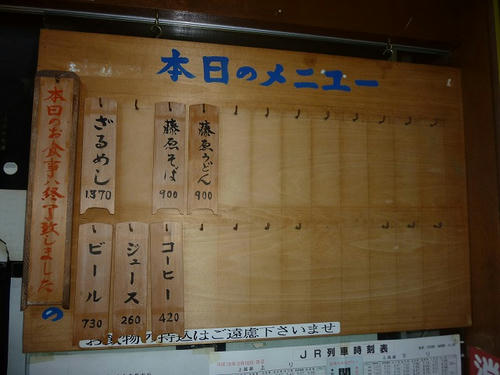 本日のメニュー
本日のお食事ハ終了致しました
ざるめし
1370
藤原そば
900
藤原うどん
900
ビール
730
ジュース
260
コーヒー
420
の
お飲物の持込はご遠慮下さいませ
JR列車時刻表